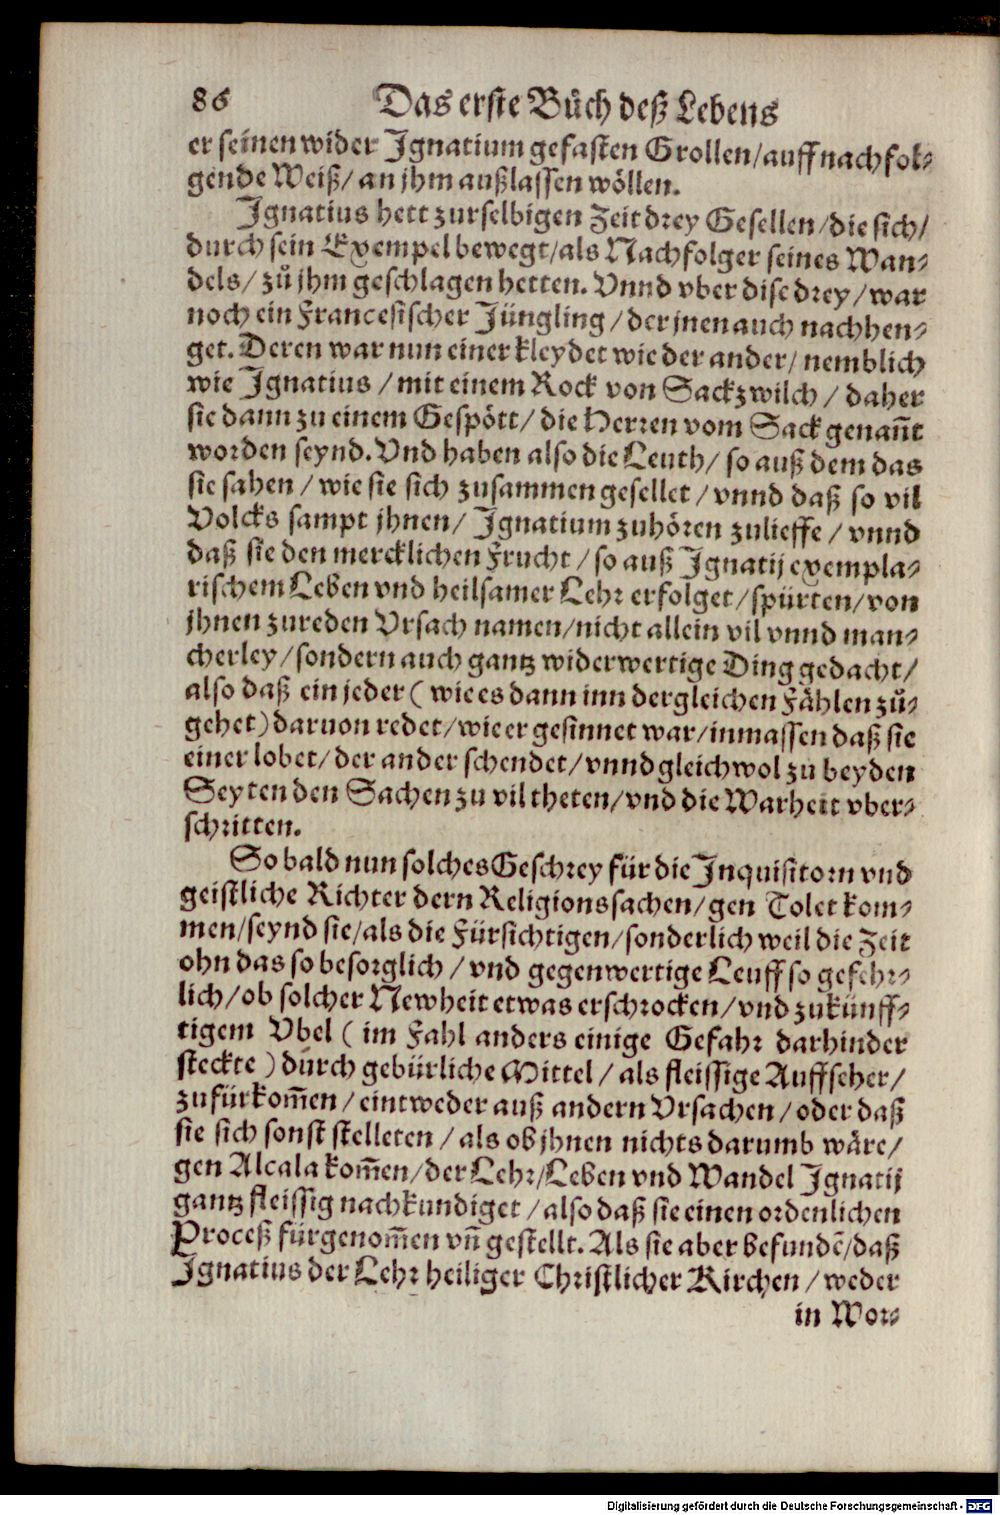 86 Das erste Bůch deß Lebens
er seinen wider Ignatium gefasten Grollen/auff nachfol⸗
gende Weiß/ an jhm außlassen wöllen.
Ignatius hett zur selbigen Zeit drey Gesellen/die sich/
durch sein Exempel bewegt/als Nachfolger seines Wan⸗
dels/ zů jhm geschlagen hetten. Vnnd vber dise drey/ war
noch ein Francesischer Jüngling/ der jnen auch nachhen⸗
get. Deren war nun einer kleydet wie der ander/ nemblich
wie Ignatius/ mit einem Rock von Sackzwilch/ daher
sie dann zu einem Gespött/ die Herren vom Sack genañt
worden seynd. Vnd haben also die Leuth/ so auß dem das
sie sahen/ wie sie sich zusammen gesellet/ vnnd daß so vil
Volcks sampt jhnen/ Ignatium zuhören zulieffe/ vnnd
daß sie den mercklichen Frucht/ so auß Ignatij exempla⸗
rischem Leben vnd heilsamer Lehr erfolget/ spürten/ von
jhnen zureden Vrsach namen/nicht allein vil vnnd man⸗
cherley/ sondern auch gantz widerwertige Ding gedacht/
also daß ein jeder ( wie es dann inn dergleichen Fählen zů⸗
gehet) daruon redet/ wie er gesinnet war/ inmassen daß sie
einer lobet/ der ander schendet/ vnnd gleichwol zu beyden
Seyten den Sachen zu vil theten/ vnd die Warheit vber⸗
schritten.
So bald nun solches Geschrey für die Inquisitorn vnd
geistliche Richter dern Religionssachen/ gen Tolet kom⸗
men/ seynd sie/ als die Fürsichtigen/ sonderlich weil die Zeit
ohn das so besorglich/ vnd gegenwertige Leuff so gefehr⸗
lich/ ob solcher Newheit etwas erschrocken/ vnd zukünff⸗
tigem Vbel ( im Fahl anders einige Gefahr darhinder
steckte ) durch gebürliche Mittel/ als fleissige Auffseher/
zufürkom̃en/ eintweder auß andern Vrsachen/ oder daß
sie sich sonst stelleten/ als ob jhnen nichts darumb wäre/
gen Alcala kom̃en/ der Lehr/ Leben vnd Wandel Ignatij
gantz fleissig nachkundiget/ also daß sie einen ordenlichen
Proceß fürgenom̃en vñ gestellt. Als sie aber befundẽ/ daß
Ignatius der Lehr heiliger Christlicher Kirchen/ weder
in Wor⸗
Digitalisierung gefördert durch die Deutsche Forschungsgemeinschaft - DFG